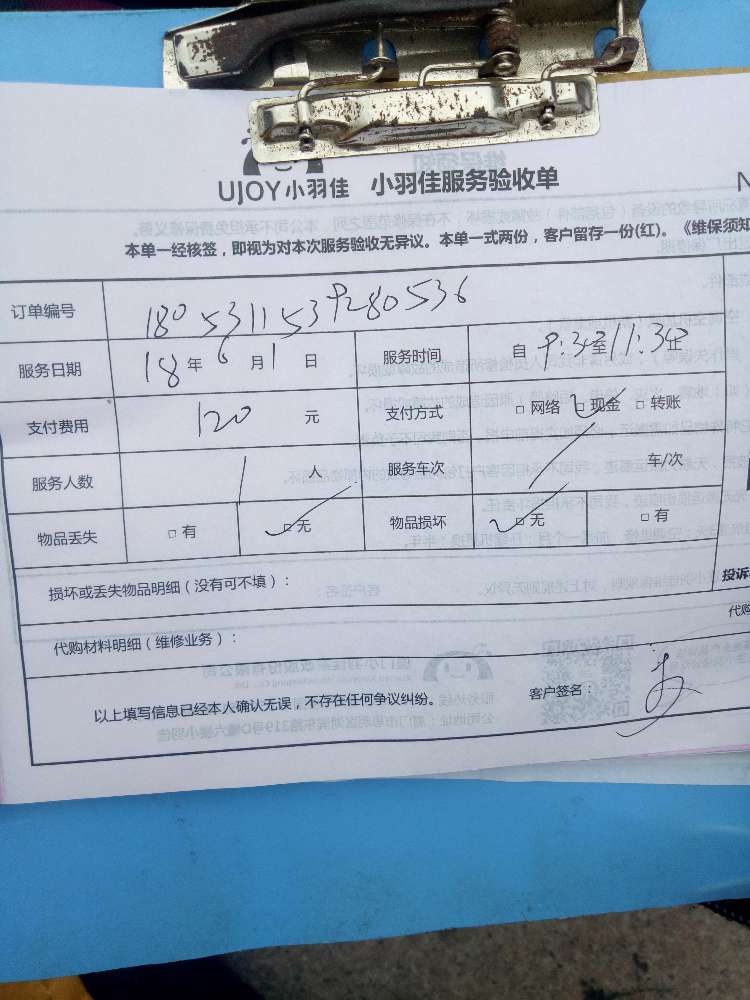 UJOY小羽佳 小羽佳服务验收单
本单一经核签，即视为对本次服务验收无异议。本单一式两份，客户留存一份(红)。《维保须知
订单编号 1805311539280536
服务日期 18 年 6 月 1 日 服务时间 自 9:30至11:30止
支付费用 120 元 支付方式 □ 网络 □ 现金 □ 转账
服务人数 1 人 服务车次 / 车/次
物品丢失 □ 有 □ 无 物品损坏 □ 无 □ 有
损坏或丢失物品明细（没有可不填）： 投诉
代购材料明细（维修业务）： 代购
以上填写信息已经本人确认无误，不存在任何争议纠纷。 客户签名：